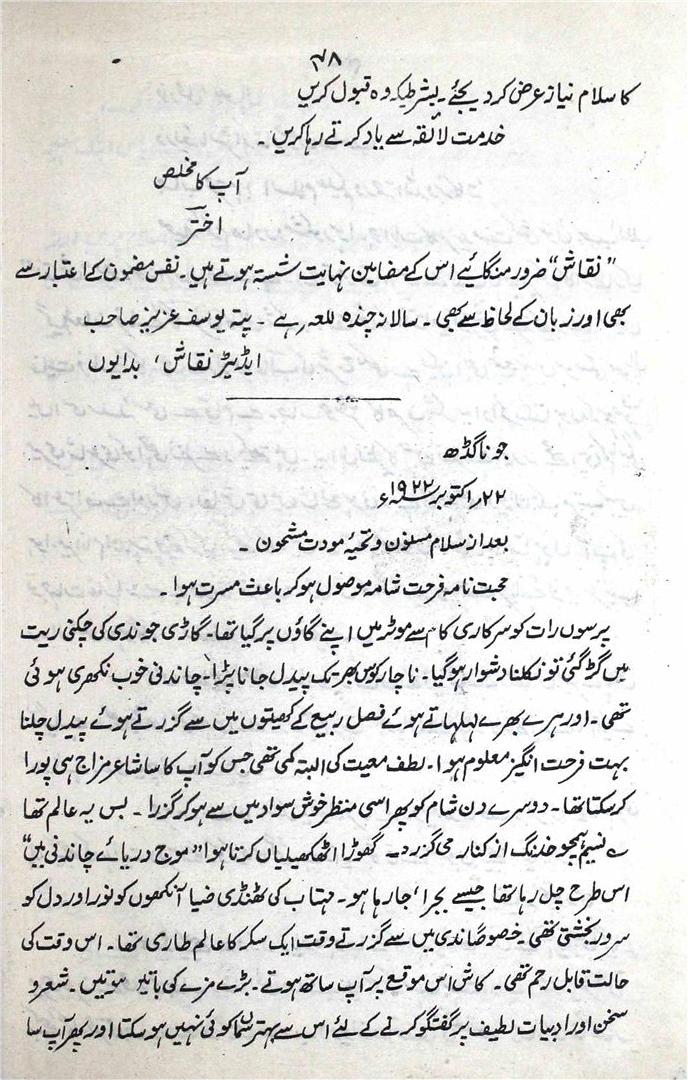 ۴۸
کا سلام نیاز عرض کر دیجئے۔ بشرطیکہ وہ قبول کریں
خدمت لائقہ سے یاد کرتے رہا کریں۔
آپ کا مخلص
اختر
"نقاش" ضرور منگائیے اس کے مضامین نہایت شستہ ہوتے ہیں۔ نفس مضمون کے اعتبار سے
بھی اور زبان کے لحاظ سے بھی۔ سالانہ چندہ للعہ ہے۔ پتہ یوسف عزیز صاحب
ایڈیٹر نقاش، بدایوں
جوناگڈھ
۲۲ر اکتوبر ۱۹۲۲ء
بعد از سلام مسنون و تحیۂ مودت مشحون۔
محبت نامہ فرحت شامہ موصول ہو کر باعث مسرت ہوا۔
پرسوں رات کو سرکاری کام سے موٹر میں اپنے گاؤں پر گیا تھا۔ گاڑی جو ندی کی چکنی ریت
میں گڑ گئی تو نکلنا دشوار ہو گیا۔ ناچار کوس بھر تک پیدل جانا پڑا۔ چاندنی خوب نکھری ہوئی
تھی۔ اور ہرے بھرے لہلہاتے ہوئے فصل ربیع کے کھیتوں میں سے گزرتے ہوئے پیدل چلنا
بہت فرحت انگیز معلوم ہوا۔ لطف معیت کی البتہ کمی تھی جس کو آپ کا سا شاعر مزاج ہی پورا
کر سکتا تھا۔ دوسرے دن شام کو پھر اسی منظر خوش سواد میں سے ہو کر گزرا۔ بس یہ عالم تھا
ے نسیم ہمچو خدنگ از کنار می گزرد۔ گھوڑا اٹھکھیلیاں کرتا ہوا "موج دریائے چاندنی میں"
اس طرح چل رہا تھا جیسے بجرا، جا رہا ہو۔ مہتاب کی ٹھنڈی ضیا آنکھوں کو نور اور دل کو
سرور بخشتی تھی۔ خصوصاً ندی میں سے گزرتے وقت ایک سکر کا عالم طاری تھا۔ اس وقت کی
حالت قابل رحم تھی۔ کاش اس موقع پر آپ ساتھ ہوتے۔ بڑے مزے کی باتیں ہوتیں۔ شعر و
سخن اور ادبیات لطیف پر گفتگو کرنے کے لئے اس سے بہتر سماں کوئی نہیں ہو سکتا اور پھر آپ سا